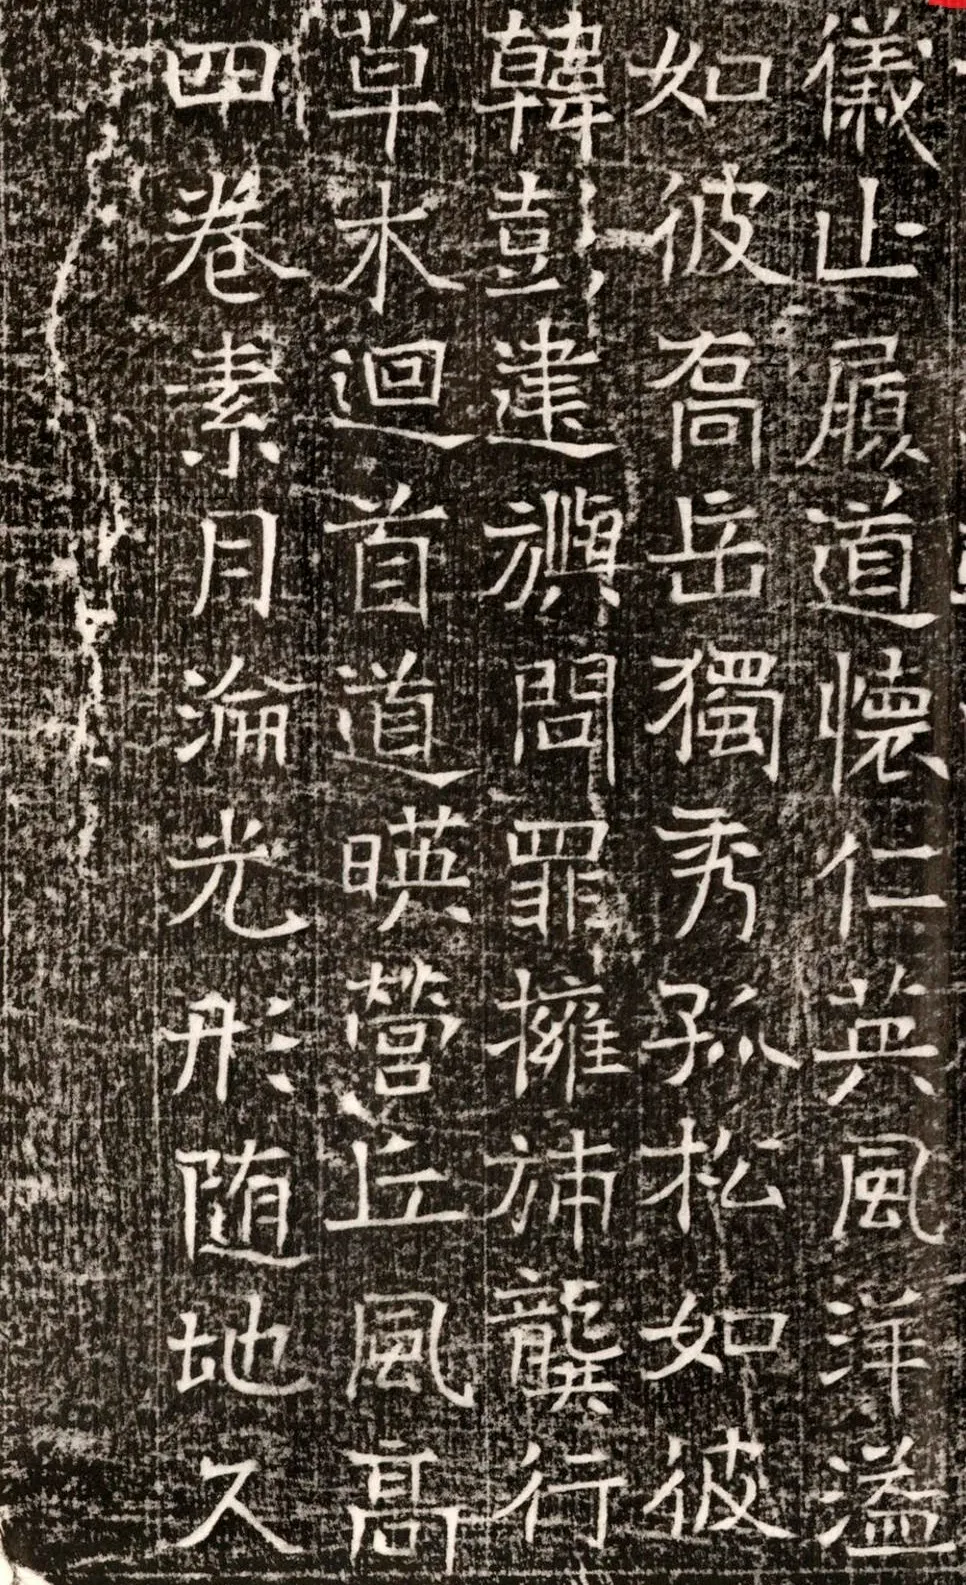 儀止履道懷仁英風洋溢
如彼喬岳獨秀孤松如彼
韓彭建旟問罪擁旆龔行
草木迴首道暎營丘風高
四卷素月淪光形随地久